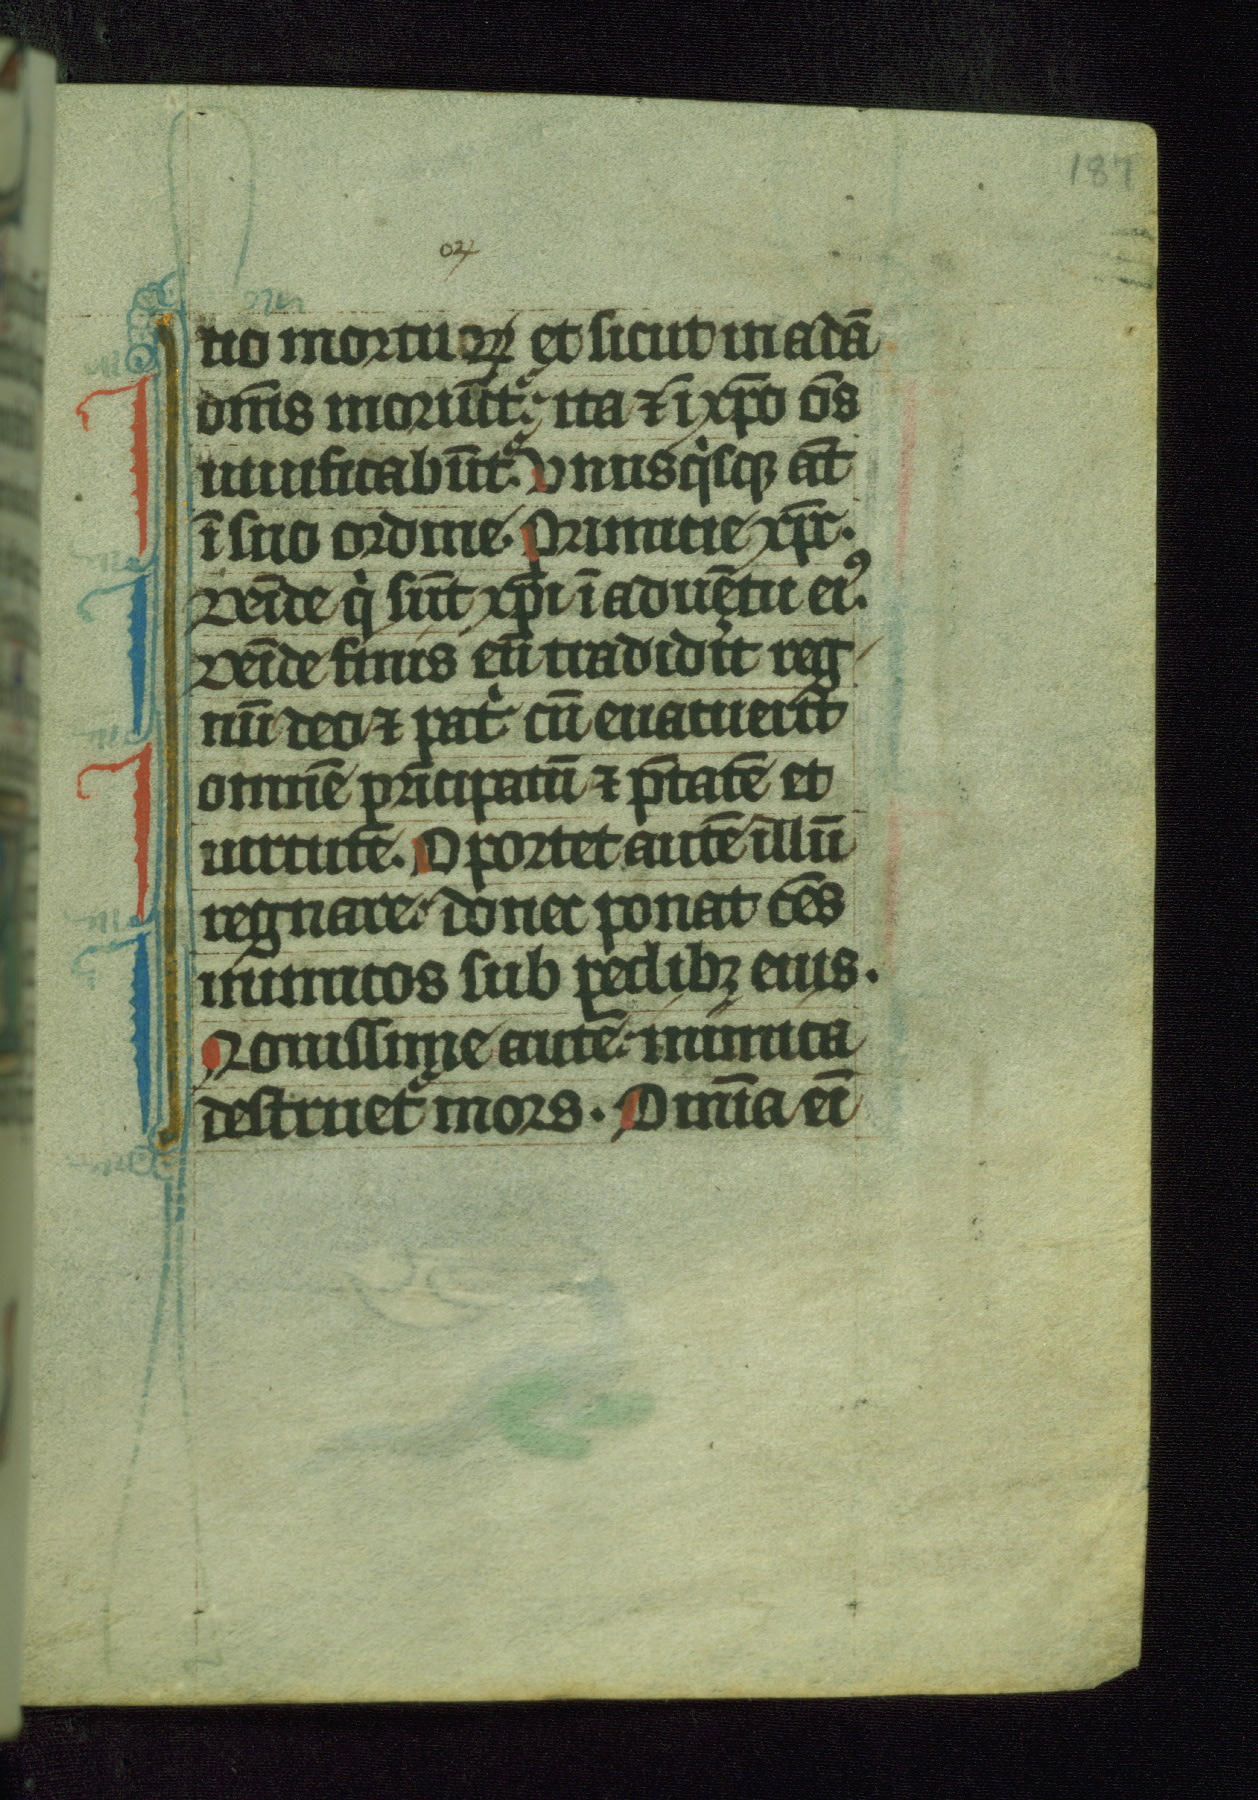 187
oꝝ
tio mortuoꝝ et sicut in adā
om̄s moriūt᷑ ita ⁊ ī xp̄o oēs
uiuificabūt᷑. Vnusqͥsqꝫ aūt
ī suo ordine. Primicie xp̄c.
Deīde qͥ sūt xp̄i ī aduētu eiꝰ.
Deīde finis cū tradid̓it reg
nū deo ⁊ patͥ cū euacuerit
omnē prīcipatū ⁊ p̄tatē et
uirtutē. Oportet autē illū
regnare. donec ponat oēs
inimicos sub pedibꝫ eius.
Nouissime autē inimica
destruet᷑ mors. Omīa eī